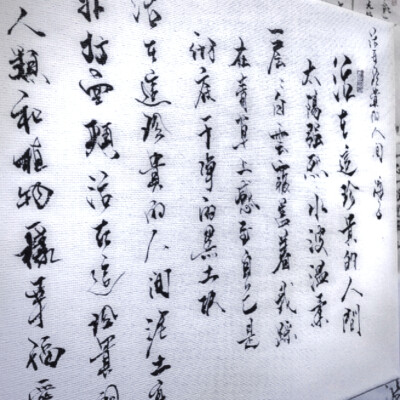 活在這珍貴的人間 海子
活在這珍貴的人間
太陽强烈水波温柔
一层々白雲覆蓋着我踩
在青草上感到自己是
彻底干净的黑土块
活在這珍貴的人間泥土高
扑打面頰活在這珍貴的
人類和植物一樣幸福愛